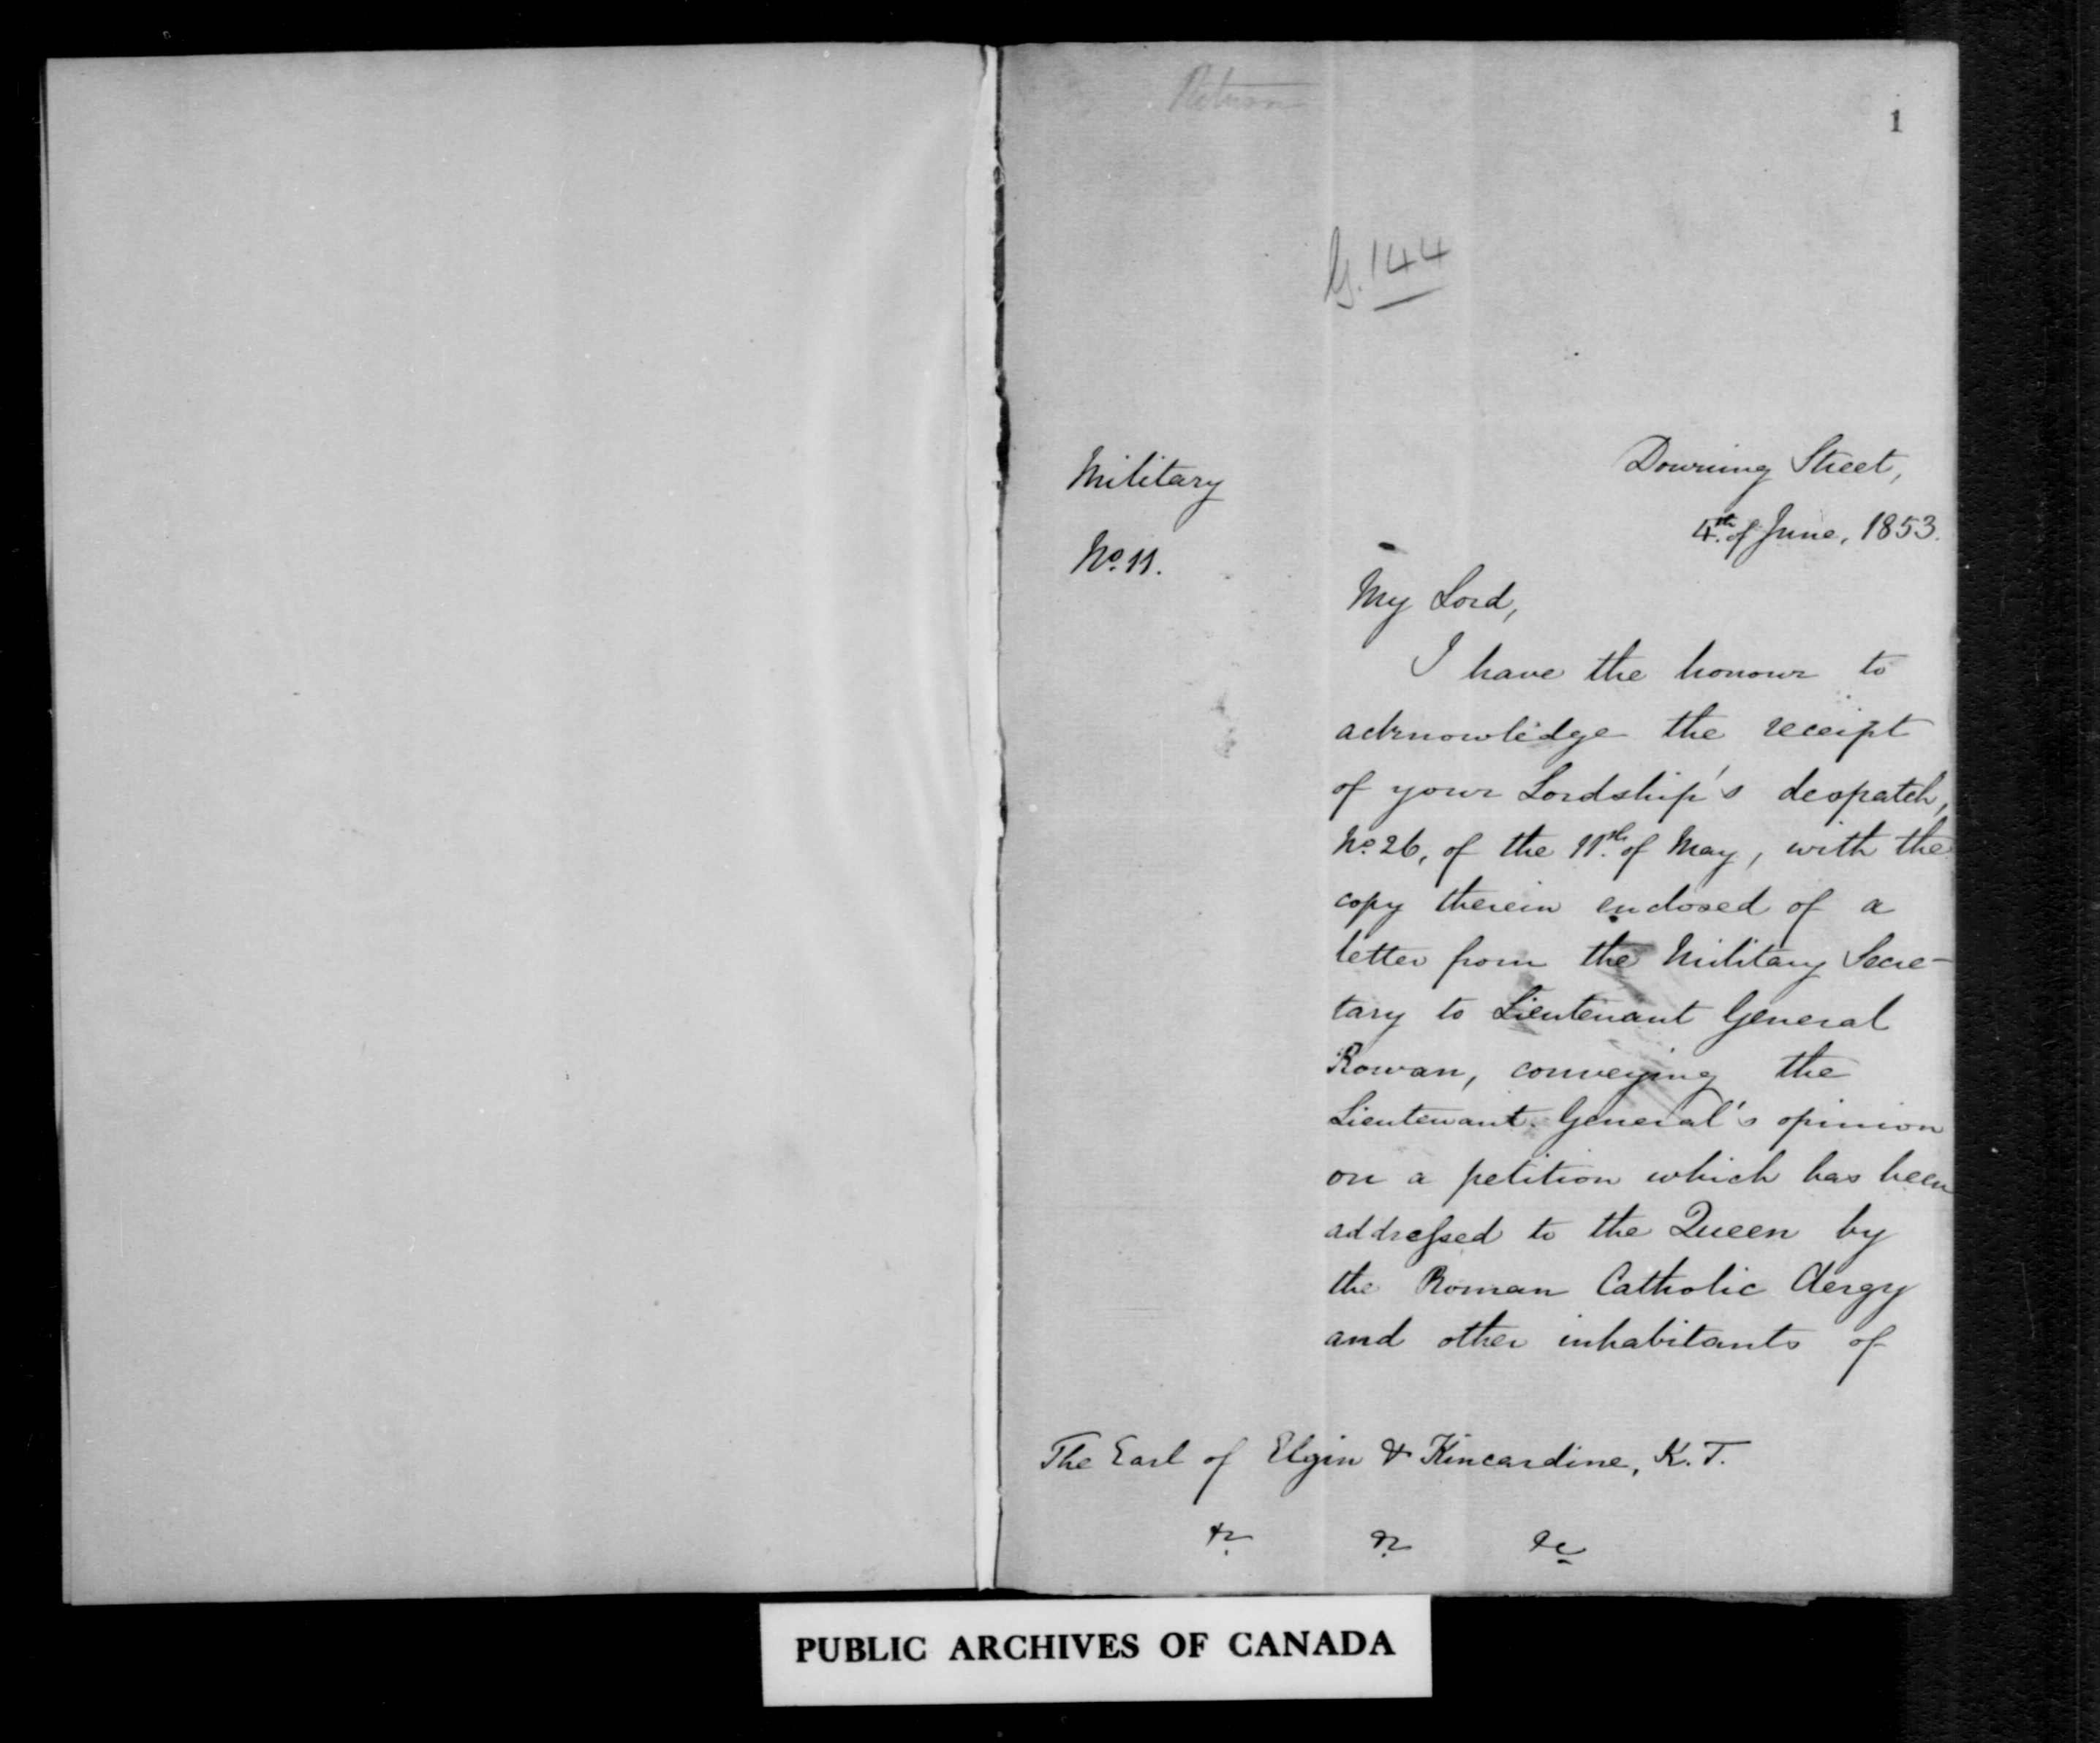 Return
1
G. 144
Military
No. 11.
Downing Street,
4th of June, 1853.
My Lord,
I have the honour to
acknowledge the receipt
of your Lordship's despatch,
No. 26, of the 11th of May, with the
copy therein enclosed of a
letter from the Military Secre-
tary to Lieutenant General
Rowan, conveying the
Lieutenant General's opinion
on a petition which has been
addressed to the Queen by
the Roman Catholic Clergy
and other inhabitants of
The Earl of Elgin & Kincardine, K. T.
&c &c &c
PUBLIC ARCHIVES OF CANADA